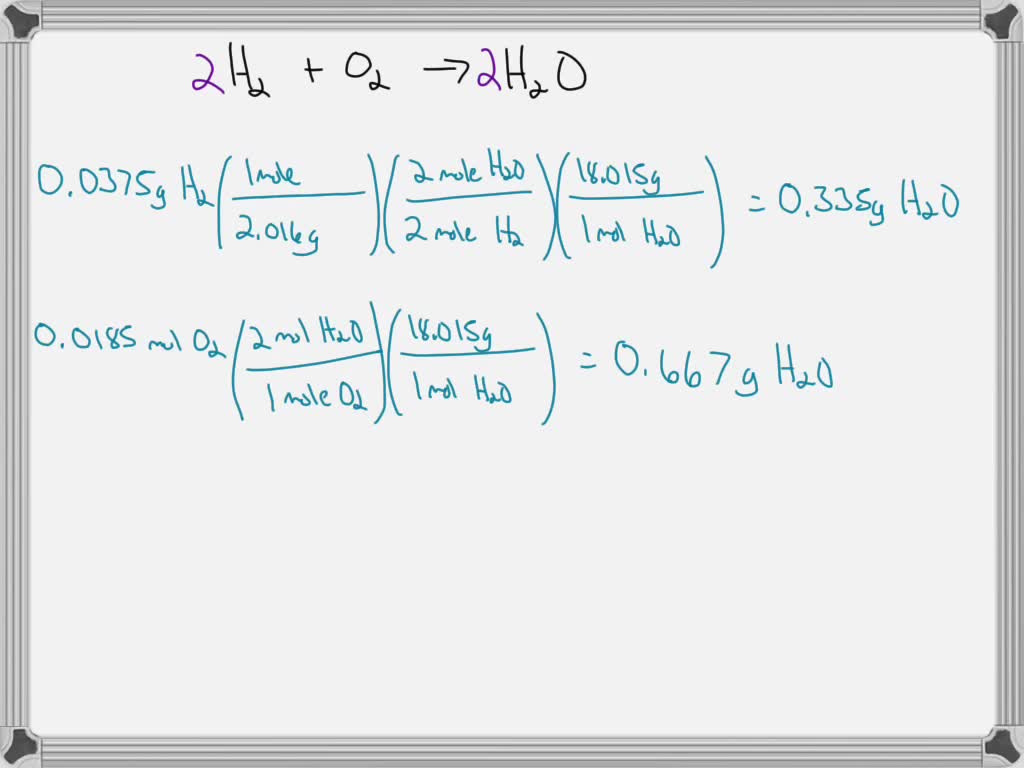 2H₂ + O₂ → 2H₂O
0.0375g H₂ (1 mole / 2.016g) (2 mole H₂O / 2 mole H₂) (18.015g / 1 mol H₂O) = 0.335g H₂O
0.0185 mol O₂ (2 mol H₂O / 1 mole O₂) (18.015g / 1 mol H₂O) = 0.667g H₂O